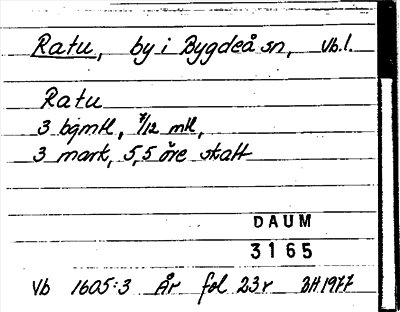 Ratu, by i Bygdeå sn, Vb. l.
Ratu
3 bgmtl, 7/12 mtl,
3 mark, 5,5 öre skatt
DAUM
3165
Vb 1605:3 År fol 23r BH 1977